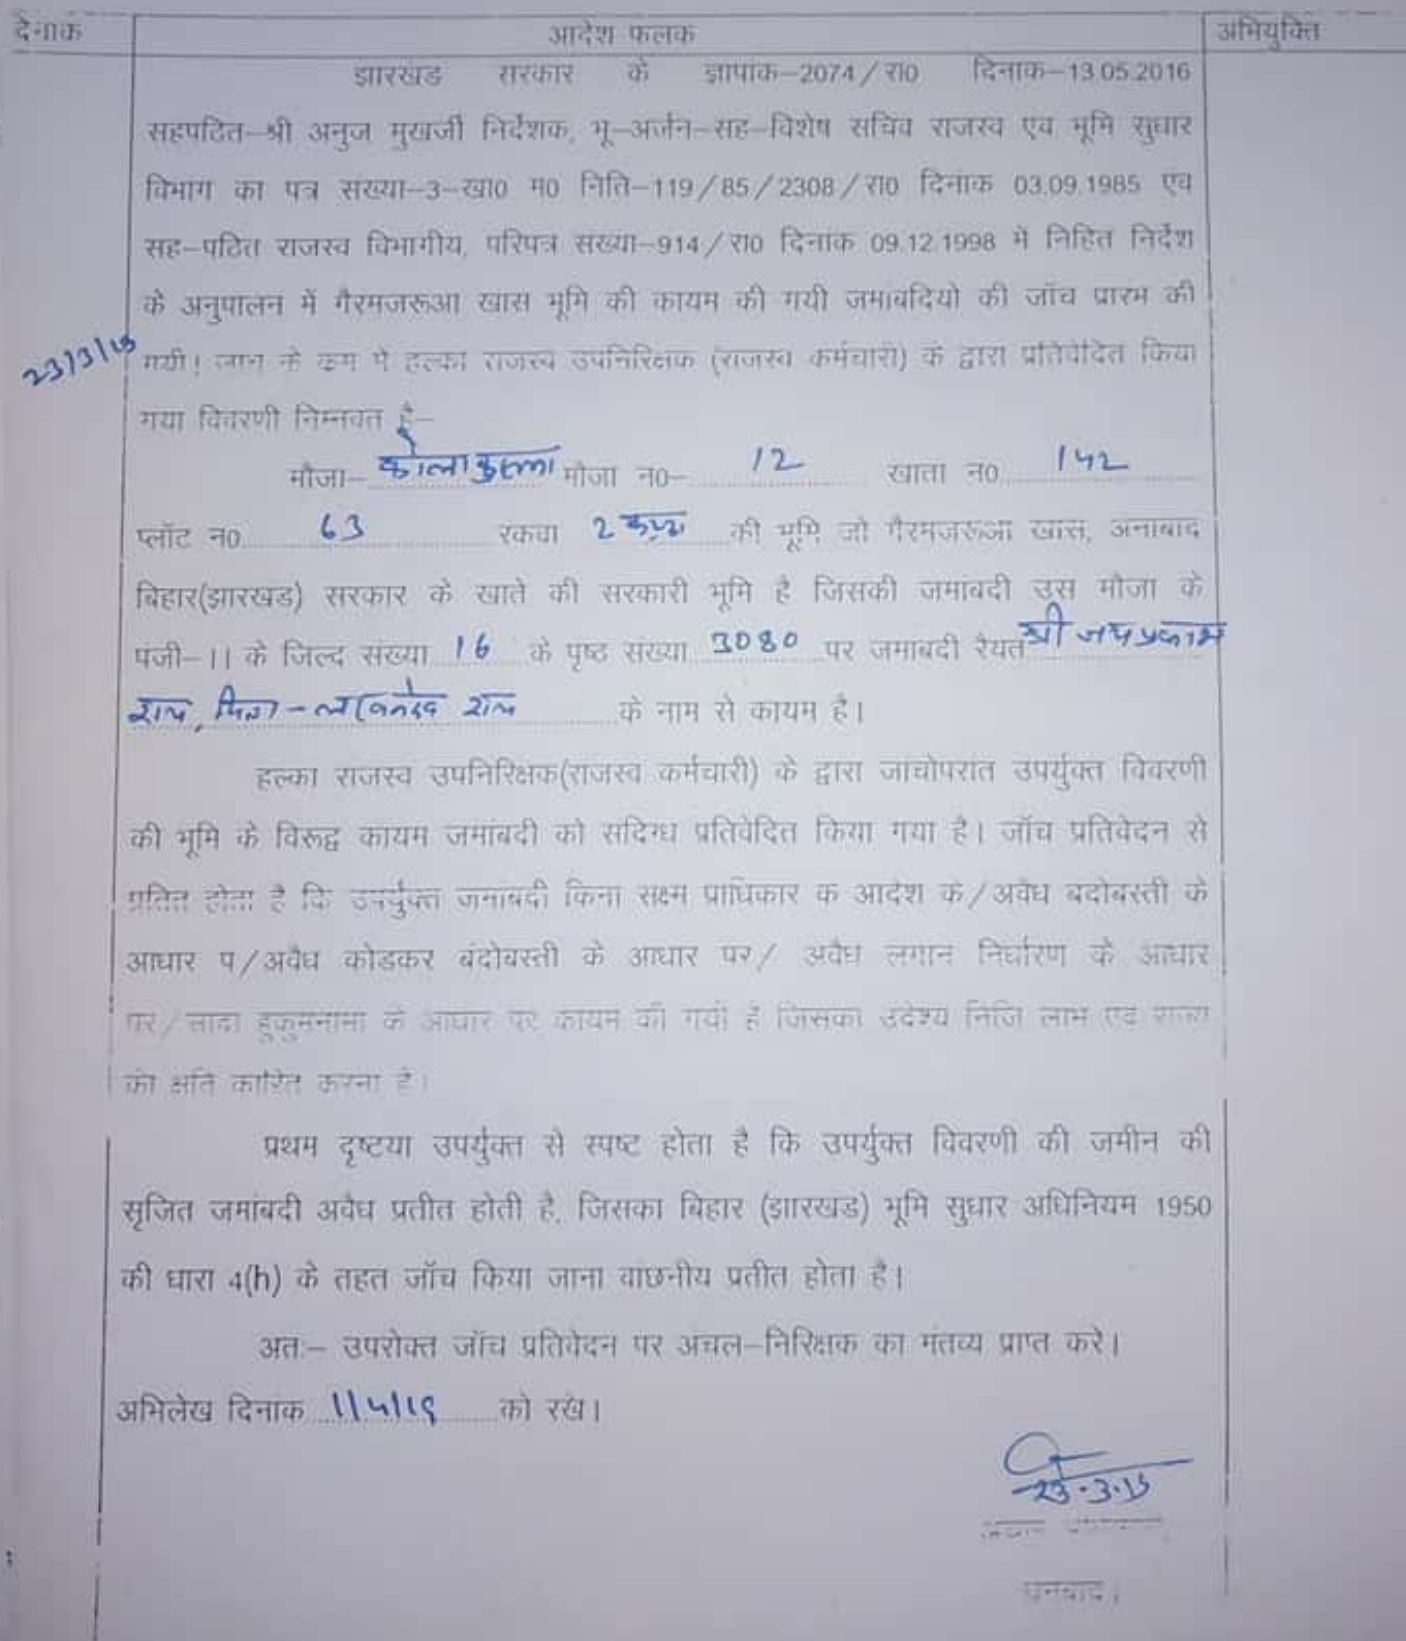 देनाक आदेश फलक अभियुक्ति
झारखंड सरकार के ज्ञापांक–2074/रा0 दिनांक–13.05.2016
सहपठित–श्री अनुज मुखर्जी निर्देशक, भू–अर्जन–सह–विशेष सचिव राजस्व एवं भूमि सुधार
विभाग का पत्र संख्या–3–खा0 म0 निति–119/85/2308/रा0 दिनांक 03.09.1985 एवं
सह–पठित राजस्व विभागीय, परिपत्र संख्या–914/रा0 दिनांक 09.12.1998 में निहित निर्देश
के अनुपालन में गैरमजरूआ खास भूमि की कायम की गयी जमाबंदियों की जॉच प्रारंभ की
गयी। जाच के क्रम में हल्का राजस्व उपनिरिक्षक (राजस्व कर्मचारी) के द्वारा प्रतिवेदित किया
गया विवरणी निम्नवत है–
मौजा– मौजा न0– 12 खाता न0 142
प्लॉट न0 63 रकवा 2 की भूमि जो गैरमजरूआ खास, अनाबाद
बिहार(झारखंड) सरकार के खाते की सरकारी भूमि है जिसकी जमांबदी उस मौजा के
पंजी–।। के जिल्द संख्या 16 के पृष्ठ संख्या 3080 पर जमांबदी रैयत श्री जयप्रकाश
राय, पिता – राय के नाम से कायम है।
हल्का राजस्व उपनिरिक्षक(राजस्व कर्मचारी) के द्वारा जांचोपरांत उपर्युक्त विवरणी
की भूमि के विरूद्व कायम जमांबदी को संदिग्ध प्रतिवेदित किया गया है। जॉच प्रतिवेदन से
प्रतित होता है कि उपर्युक्त जमांबदी किना सक्ष्म प्राधिकार क आदेश के/अवैध बदोबस्ती के
आधार प/अवैध कोडकर बंदोबस्ती के आधार पर/ अवैध लगान निर्धारण के आधार
पर/सादा हुकुमनामा के आधार पर कायम की गयी है जिसका उदेश्य निजि लाभ एवं राज्य
को क्षति कारित करना है।
प्रथम दृष्टया उपर्युक्त से स्पष्ट होता है कि उपर्युक्त विवरणी की जमीन की
सृजित जमांबदी अवैध प्रतीत होती है, जिसका बिहार (झारखंड) भूमि सुधार अधिनियम 1950
की धारा 4(h) के तहत जॉच किया जाना वांछनीय प्रतीत होता है।
अतः– उपरोक्त जॉच प्रतिवेदन पर अंचल–निरिक्षक का मंतव्य प्राप्त करे।
अभिलेख दिनांक 1/4/19 को रखे।
23.3.19
धनबाद।